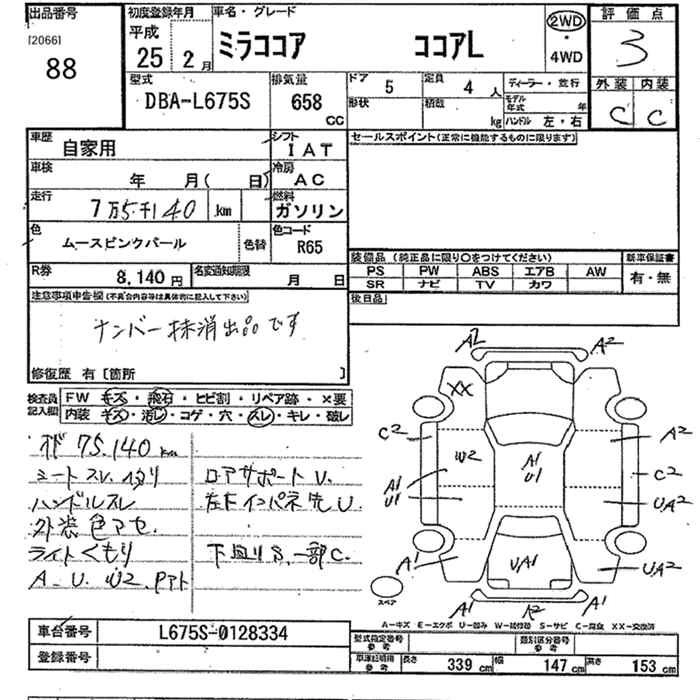 出品番号
[2066]
88
初度登録年月
平成
25 2月
車名・グレード
ミラココア ココアL
2WD
・
4WD
評価点
3
外装 内装
C C
型式
DBA-L675S
排気量
658
CC
ドア 5
定員 4 人
形状
積載 kg
ディーラー・並行
モデル年式 年
ハンドル 左・右
車歴
自家用
シフト
IAT
車検
年 月( 日)
冷房
AC
走行
7万5千140 km
燃料
ガソリン
色
ムースピンクパール
色替
色コード
R65
R券
8,140円
名変通知期限
月 日
セールスポイント(正常に機能するものに限ります)
装備品 (純正品に限り○をつけてください)
PS PW ABS エアB AW
SR ナビ TV カワ
新車保証書
有・無
後日品
注意事項申告欄(不具合内容等は具体的に記入して下さい)
ナンバー抹消出品です
修復歴 有 [箇所 ]
検査員記入欄
FW キズ・飛石・ヒビ割・リペア跡・×要
内装 キズ・汚レ・コゲ・穴・スレ・キレ・破レ
75.140km
シートスレ
ハンドルスレ
外装色アセ
ライトくもり
A.U.W2.
ロアサポートU.
左Fインパネ先U
下廻りS.一部C.
A2 A2
XX
C2 W2 A1 U1 A2
C2
A1 U1 U,A2
A1 U,A1 U,A2
A1 A2 A1
スペア
A-キズ E-エクボ U-凹み W-補修跡 S-サビ C-腐食 XX-交換済
車台番号
L675S-0128334
登録番号
型式指定番号
参考
類別区分番号
参考
車庫証明用
参考
長さ 339 cm 幅 147 cm 高さ 153 cm